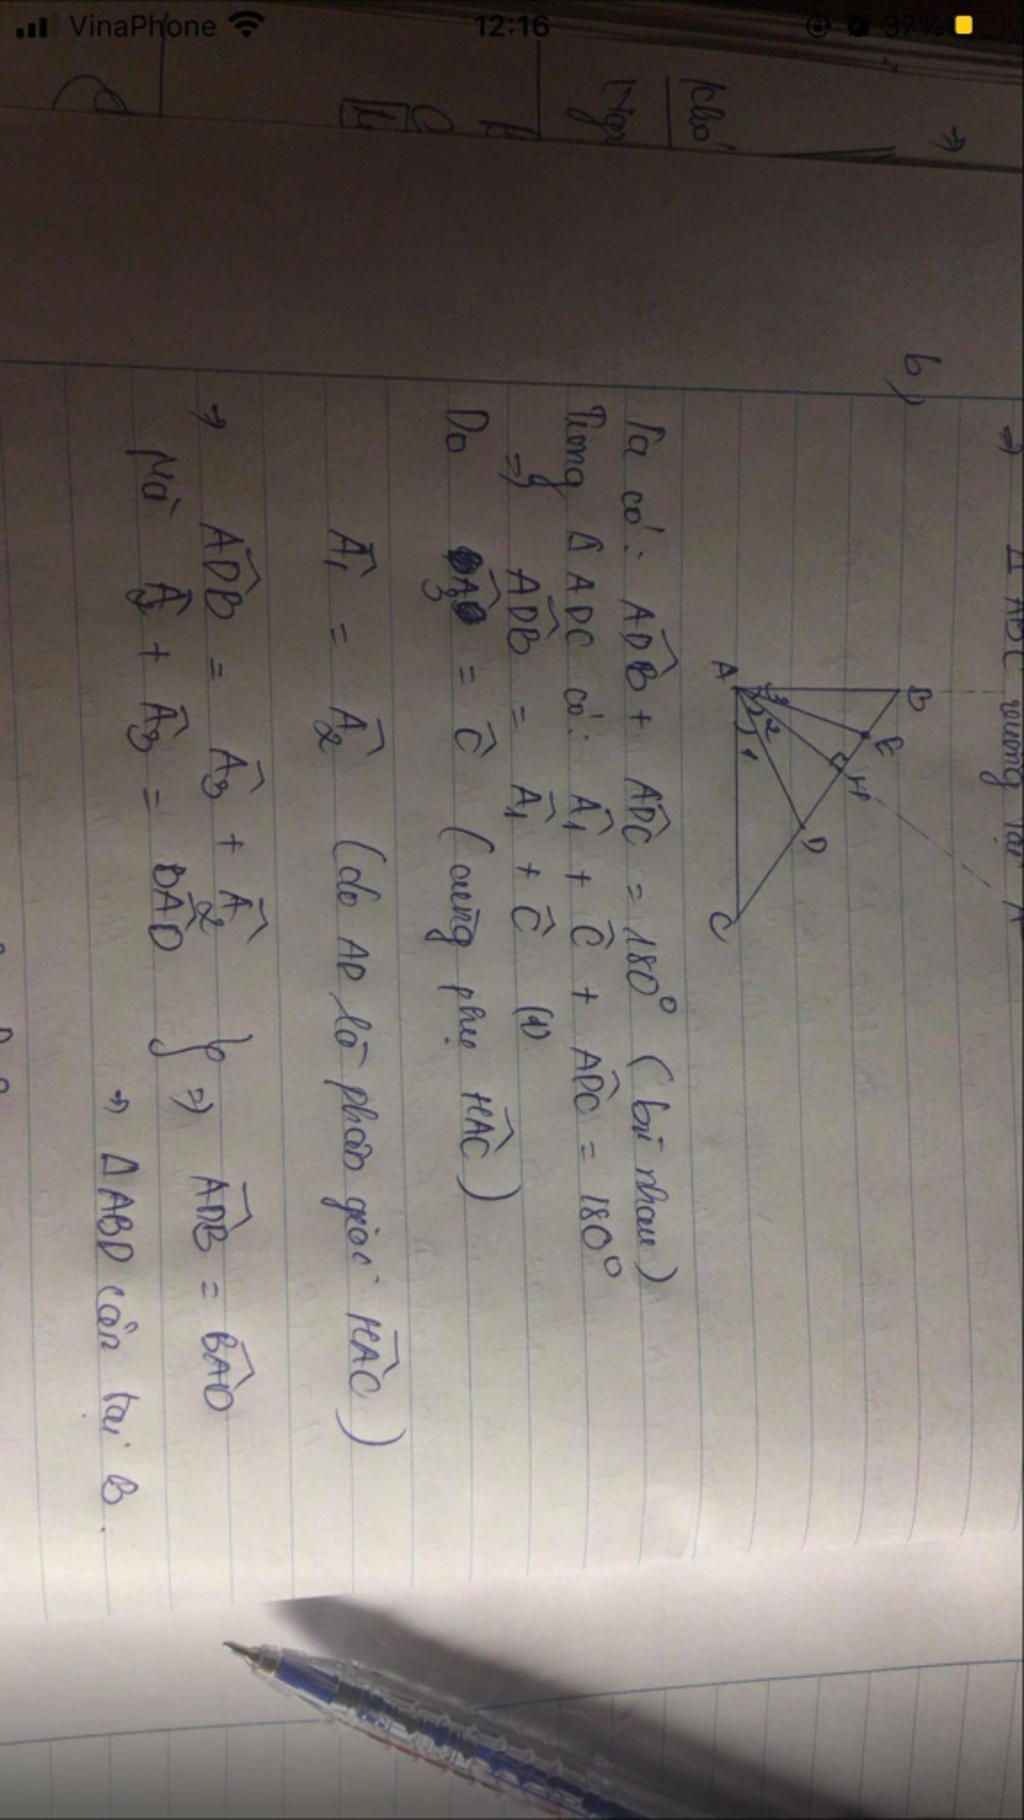 VinaPhone 12:16 37%
⇒ Δ ABC vuông tại A
b)
B
E
H
D
A
3
2
1
C
Ta có: ADB + ADC = 180° (bù nhau)
Trong Δ ADC có: A1 + C + ADC = 180°
⇒ ADB = A1 + C (1)
Do A3 = C (cùng phụ HAC)
A1 = A2 (do AD là phân giác HAC)
⇒ ADB = A3 + A2
Mà A2 + A3 = BAD } ⇒ ADB = BAD
⇒ Δ ABD cân tại B.